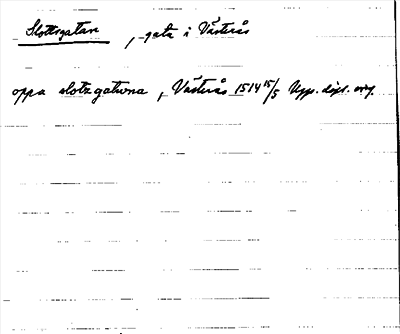 Slottsgatan, -gata i Västerås
oppa slotz gatwna, Västerås 1514 15/5 Upps. dipl. orig.